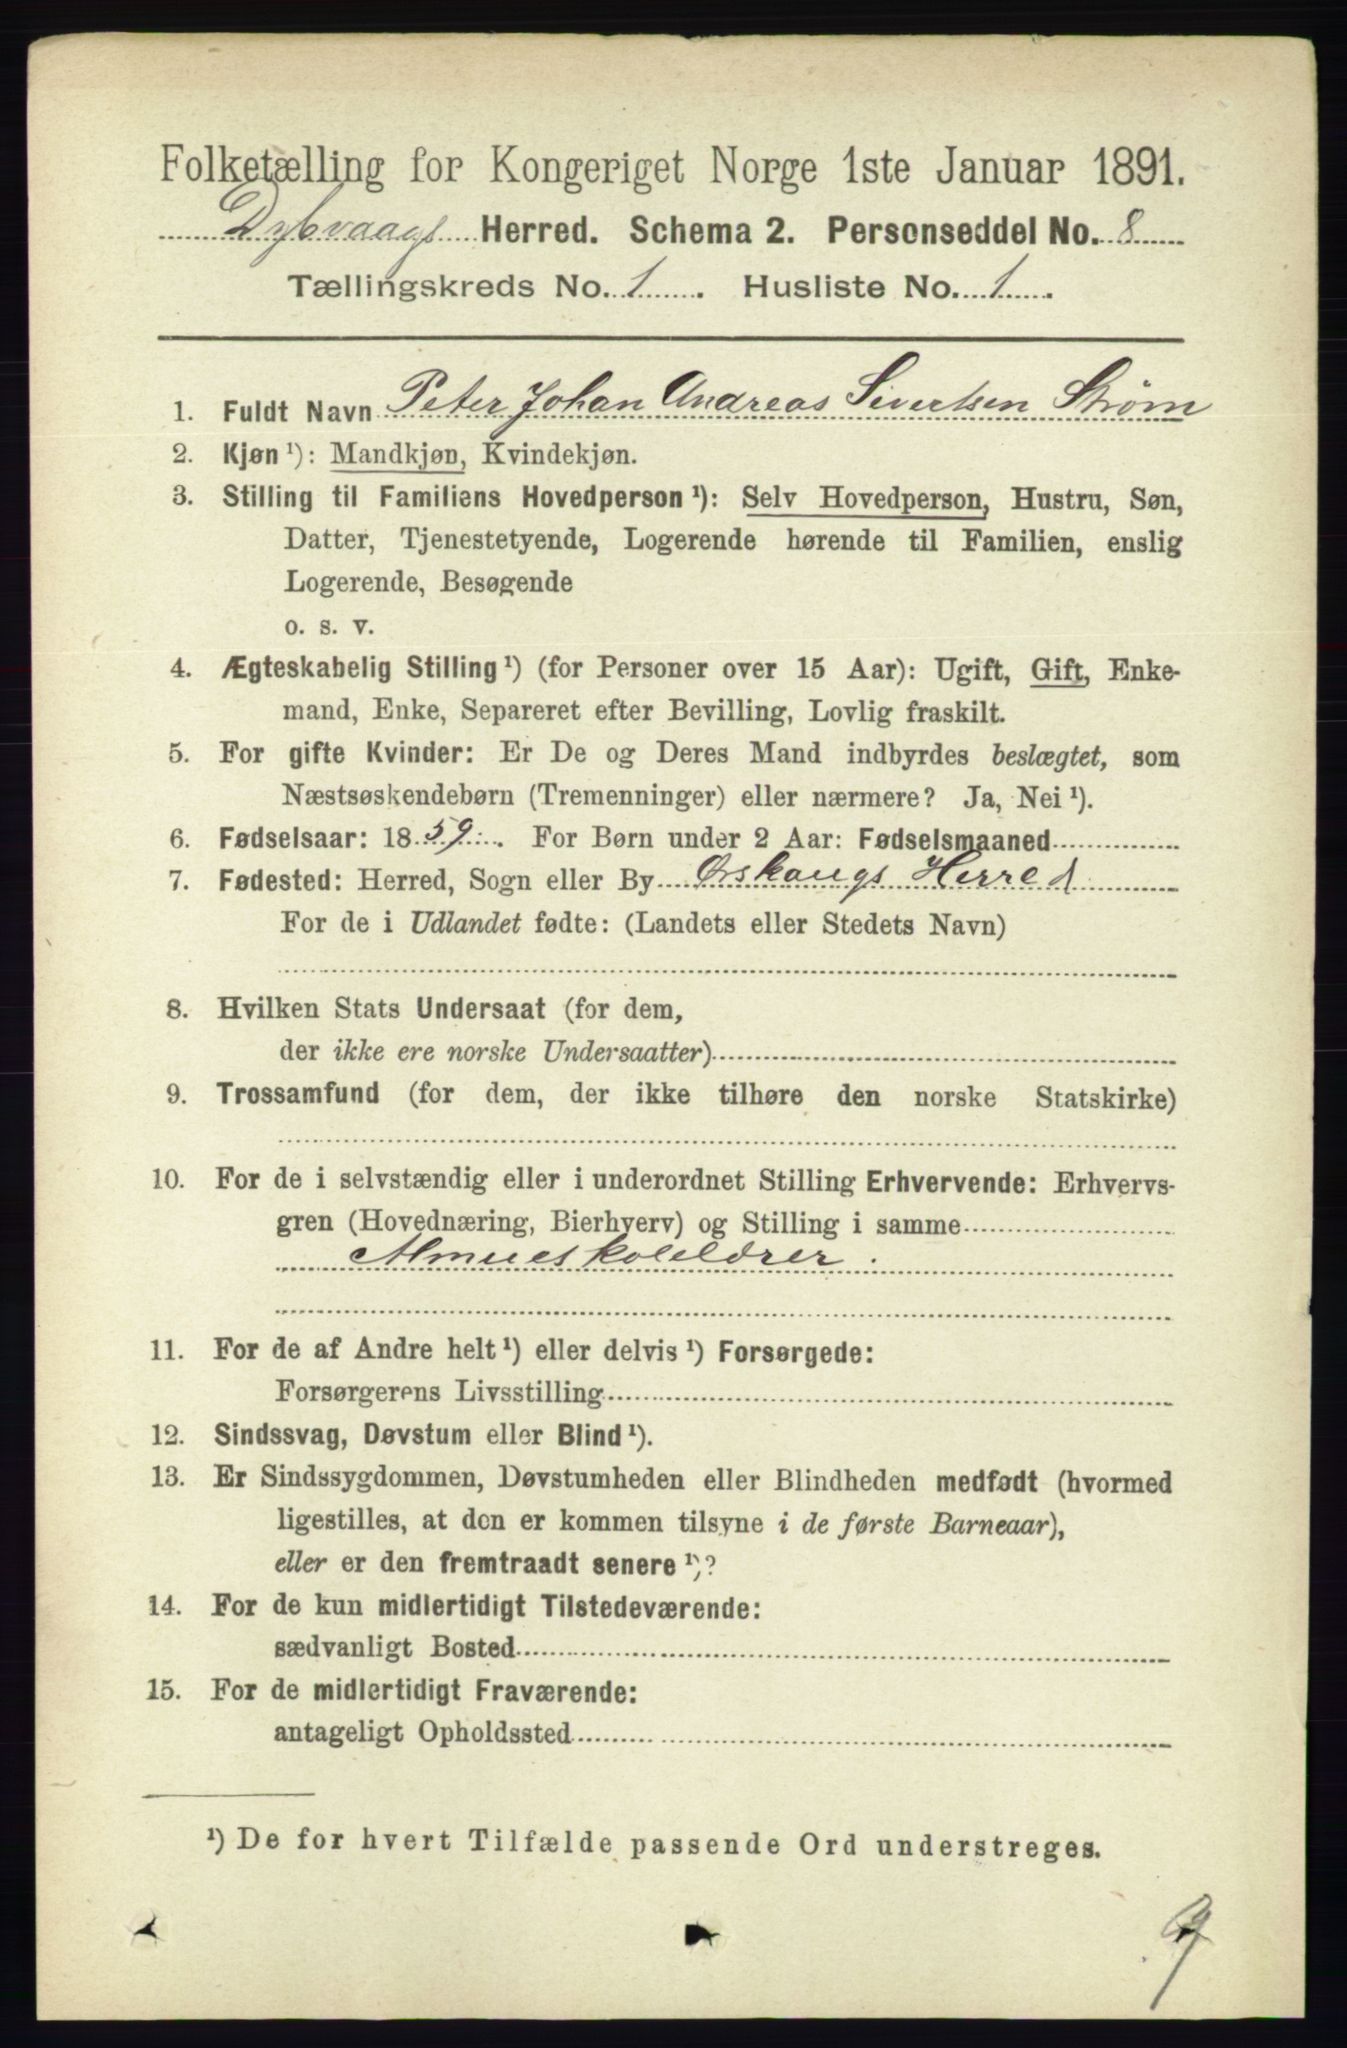 Folketælling for Kongeriget Norge 1ste Januar 1891.
Dybvaags Herred. Schema 2. Personseddel No. 8
Tællingskreds No. 1. Husliste No. 1.
1. Fuldt Navn Peter Johan Andreas Sivertsen Strøm
2. Kjøn ¹): Mandkjøn, Kvindekjøn.
3. Stilling til Familiens Hovedperson ¹): Selv Hovedperson, Hustru, Søn,
Datter, Tjenestetyende, Logerende hørende til Familien, enslig
Logerende, Besøgende
o. s. v.
4. Ægteskabelig Stilling ¹) (for Personer over 15 Aar): Ugift, Gift, Enke-
mand, Enke, Separeret efter Bevilling, Lovlig fraskilt.
5. For gifte Kvinder: Er De og Deres Mand indbyrdes beslægtet, som
Næstsøskendebørn (Tremenninger) eller nærmere? Ja, Nei ¹).
6. Fødselsaar: 1859. For Børn under 2 Aar: Fødselsmaaned
7. Fødested: Herred, Sogn eller By Ørskougs Herred
For de i Udlandet fødte: (Landets eller Stedets Navn)
8. Hvilken Stats Undersaat (for dem,
der ikke ere norske Undersaatter)
9. Trossamfund (for dem, der ikke tilhøre den norske Statskirke)
10. For de i selvstændig eller i underordnet Stilling Erhvervende: Erhvervs-
gren (Hovednæring, Bierhverv) og Stilling i samme
Almueskolelærer.
11. For de af Andre helt ¹) eller delvis ¹) Forsørgede:
Forsørgerens Livsstilling
12. Sindssvag, Døvstum eller Blind ¹).
13. Er Sindssygdommen, Døvstumheden eller Blindheden medfødt (hvormed
ligestilles, at den er kommen tilsyne i de første Barneaar),
eller er den fremtraadt senere ¹)?
14. For de kun midlertidigt Tilstedeværende:
sædvanligt Bosted
15. For de midlertidigt Fraværende:
antageligt Opholdssted
¹) De for hvert Tilfælde passende Ord understreges.
9